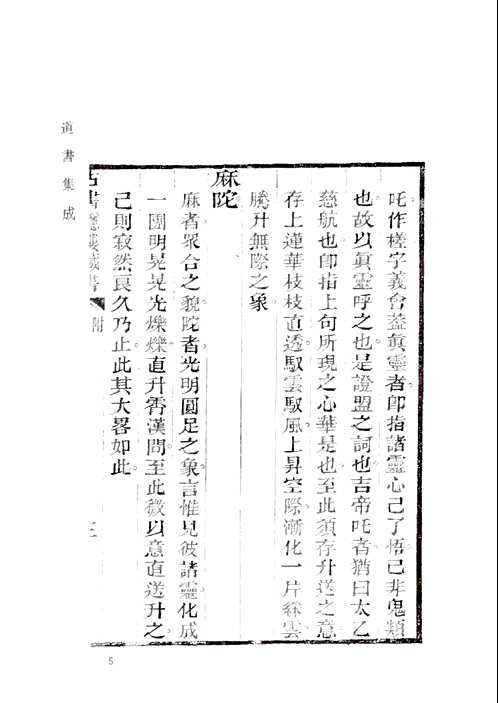 道書集成
吒作樣字義會葢眞靈者卽指諸靈心已了悟已非鬼類
也故以眞靈呼之也是證盟之詞也吉帝吒者猶曰太乙
慈航也卽指上句所現之心華是也至此須存升送之意
存上蓮華枝枝直透馭雲馭風上昇空際漸化一片綵雲
騰升無際之象
麻陀
麻者眾合之貌陀者光明圓足之象言惟見彼諸靈化成
一團明晃晃光爍爍直升霄漢間至此微以意直送升之
已則寂然良久乃止此其大畧如此
古書隱樓藏書
附
三
5